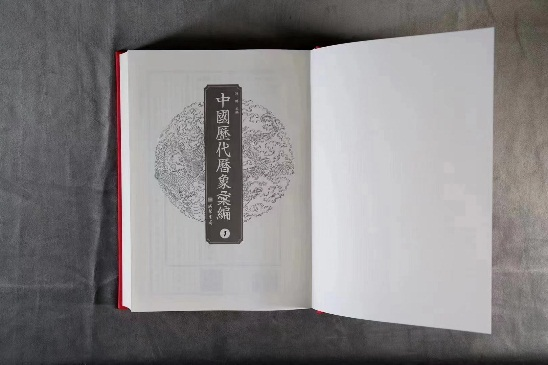 中國歷代曆象彙編
1